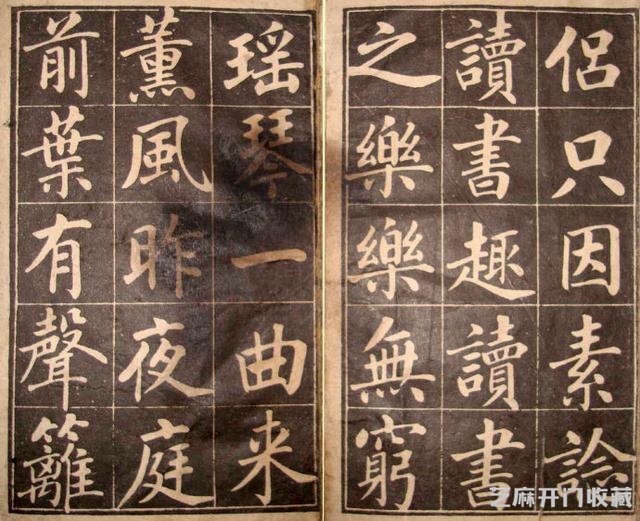 侣只因素諗
讀書趣讀書
之樂樂無窮
瑶琴一曲来
薰風昨夜庭
前葉有聲籬
芝麻开门收藏